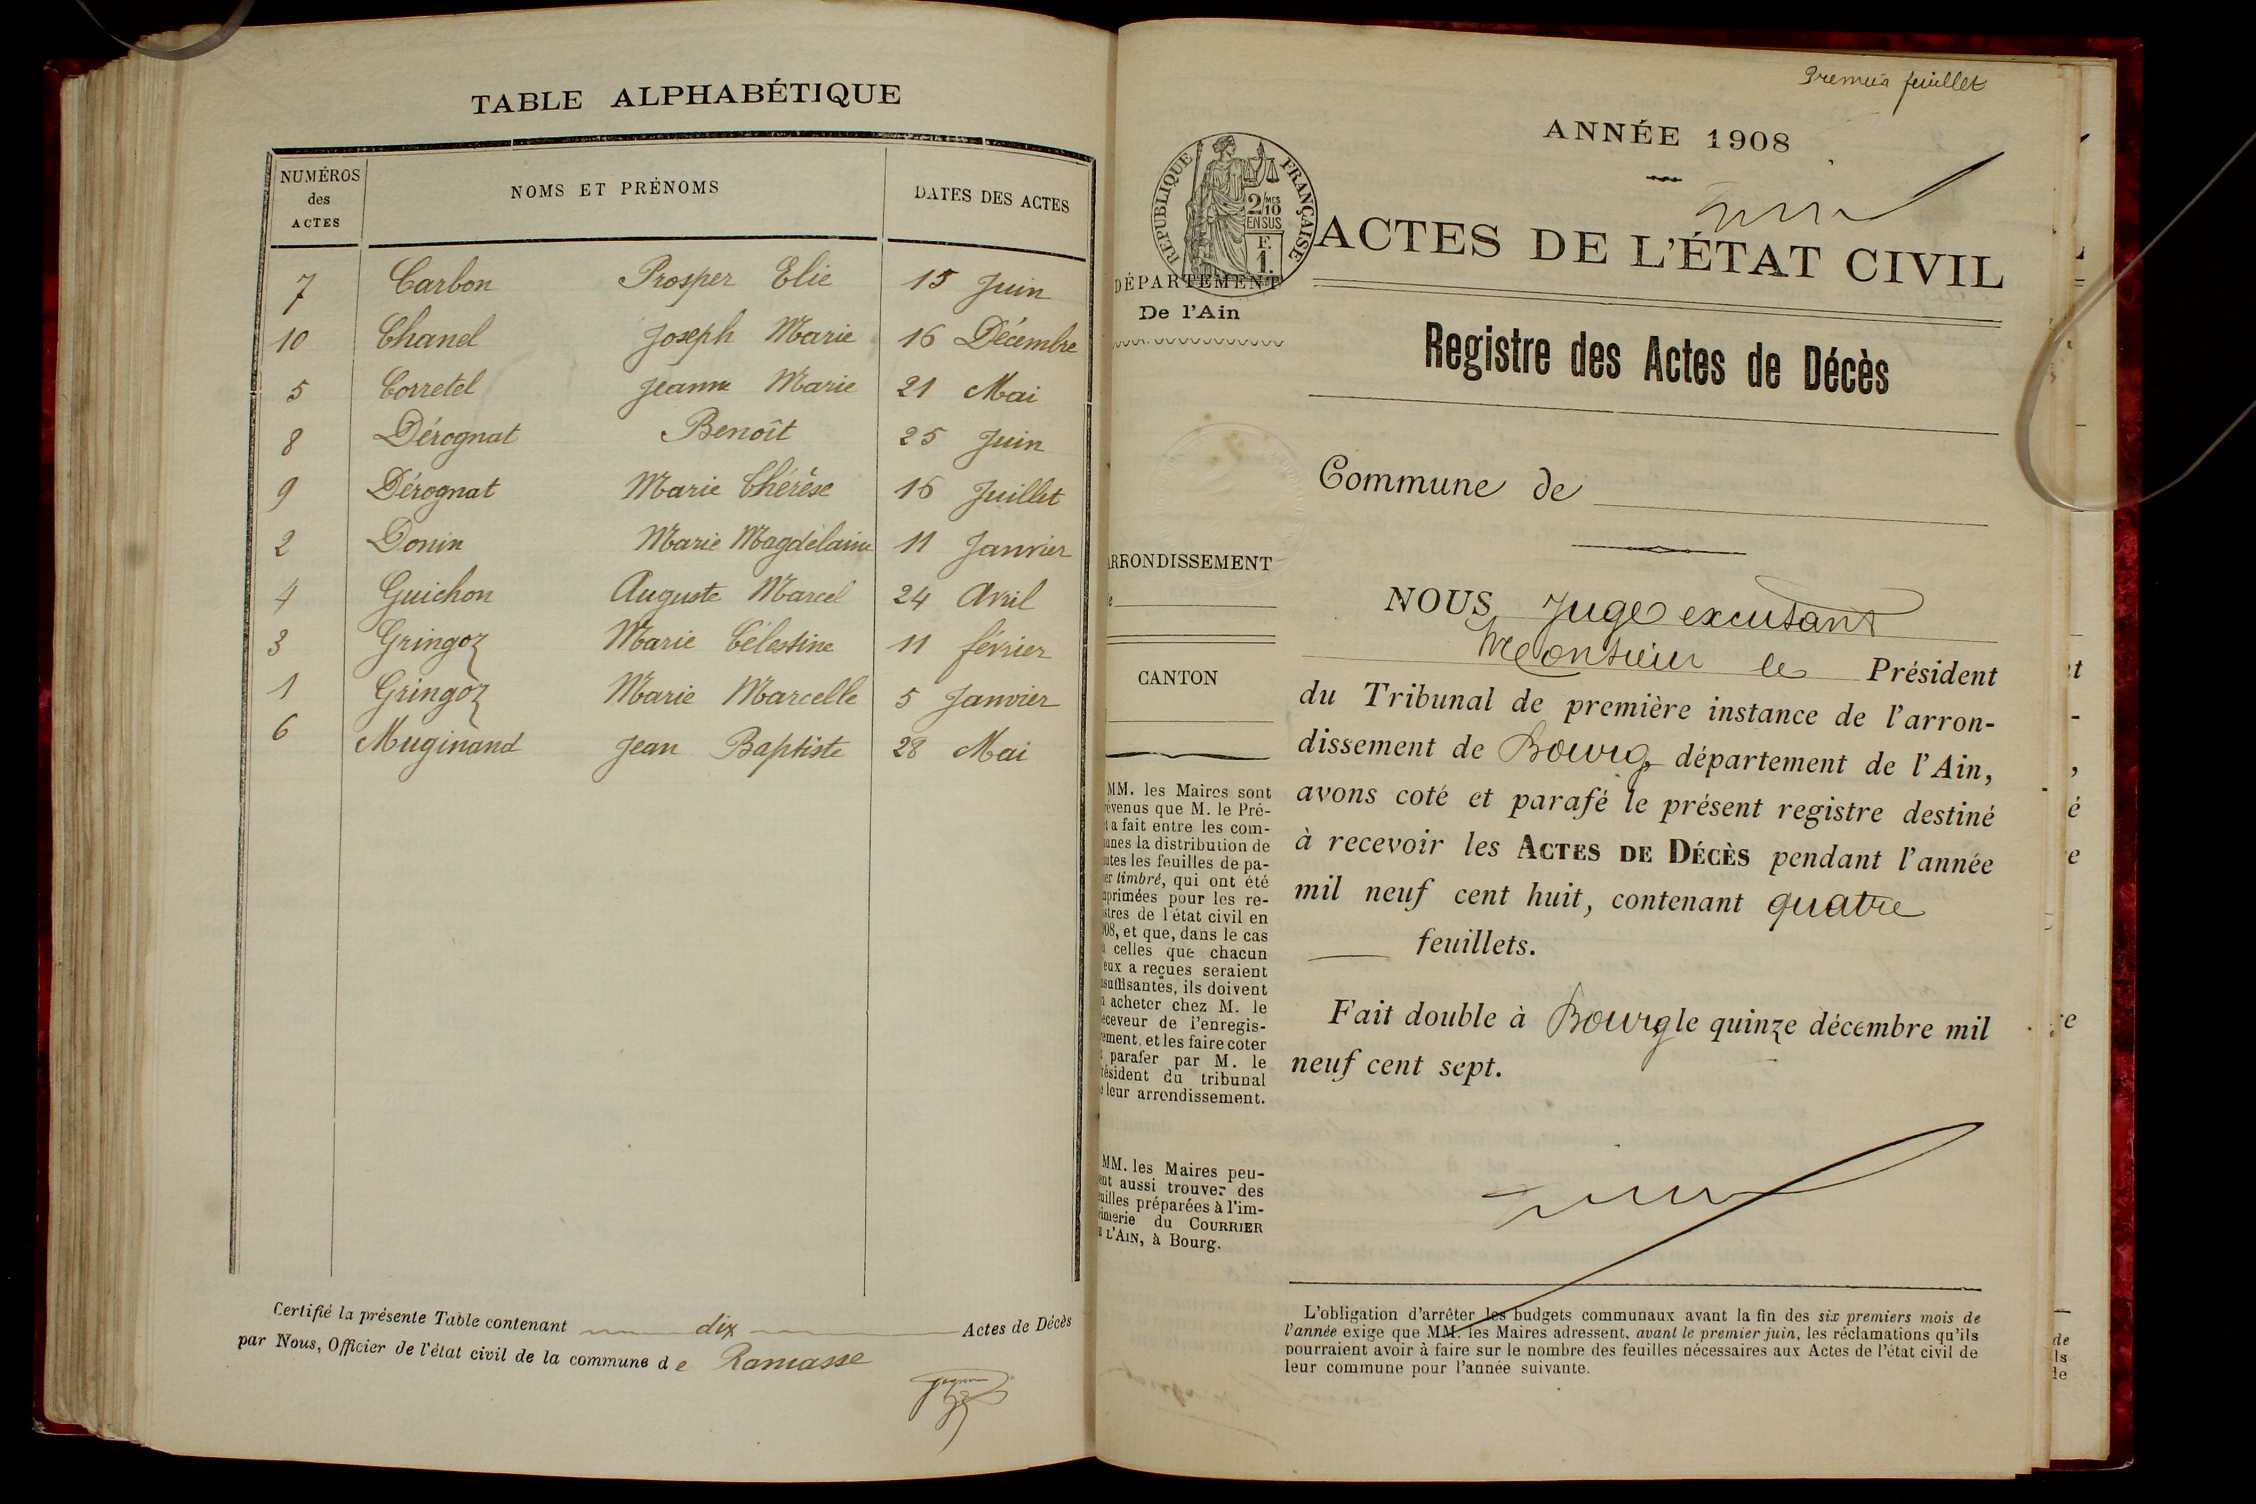 TABLE ALPHABÉTIQUE
NUMÉROS des ACTES NOMS ET PRÉNOMS DATES DES ACTES
7 Carbon Prosper Elie 15 Juin
10 Chanel Joseph Marie 16 Décembre
5 Corretel Jeanne Marie 21 Mai
8 Dérognat Benoît 25 Juin
9 Dérognat Marie Thérèse 16 Juillet
2 Donin Marie Magdelaine 11 Janvier
4 Guichon Auguste Marcel 24 Avril
3 Gringoz Marie Célestine 11 février
1 Gringoz Marie Marcelle 5 Janvier
6 Muginand Jean Baptiste 28 Mai
Certifié la présente Table contenant dix Actes de Décès
par Nous, Officier de l'état civil de la commune de Ramasse
Premier feuillet
ANNÉE 1908
RÉPUBLIQUE FRANÇAISE
2/10 MES
EN SUS
F.
1.
ACTES DE L'ÉTAT CIVIL
DÉPARTEMENT
De l'Ain
Registre des Actes de Décès
Commune de
ARRONDISSEMENT
CANTON
MM. les Maires sont
évenus que M. le Pré-
t a fait entre les com-
unes la distribution de
utes les feuilles de pa-
er timbré, qui ont été
primées pour les re-
stres de l'état civil en
08, et que, dans le cas
celles que chacun
eux a reçues seraient
suffisantes, ils doivent
acheter chez M. le
eceveur de l'enregis-
ement, et les faire coter
parafer par M. le
résident du tribunal
leur arrondissement.
MM. les Maires peu-
ent aussi trouver des
uilles préparées à l'im-
imerie du COURRIER
L'AIN, à Bourg.
NOUS Juge excusant
Monsieur le Président
du Tribunal de première instance de l'arron-
dissement de Bourg, département de l'Ain,
avons coté et parafé le présent registre destiné
à recevoir les ACTES DE DÉCÈS pendant l'année
mil neuf cent huit, contenant quatre
feuillets.
Fait double à Bourg le quinze décembre mil
neuf cent sept.
L'obligation d'arrêter les budgets communaux avant la fin des six premiers mois de
l'année exige que MM. les Maires adressent, avant le premier juin, les réclamations qu'ils
pourraient avoir à faire sur le nombre des feuilles nécessaires aux Actes de l'état civil de
leur commune pour l'année suivante.